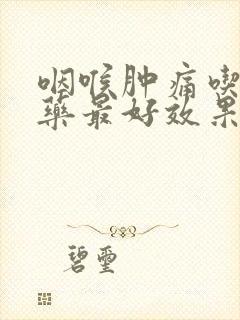 咽喉肿痛喫
藥最好效果
碧璽